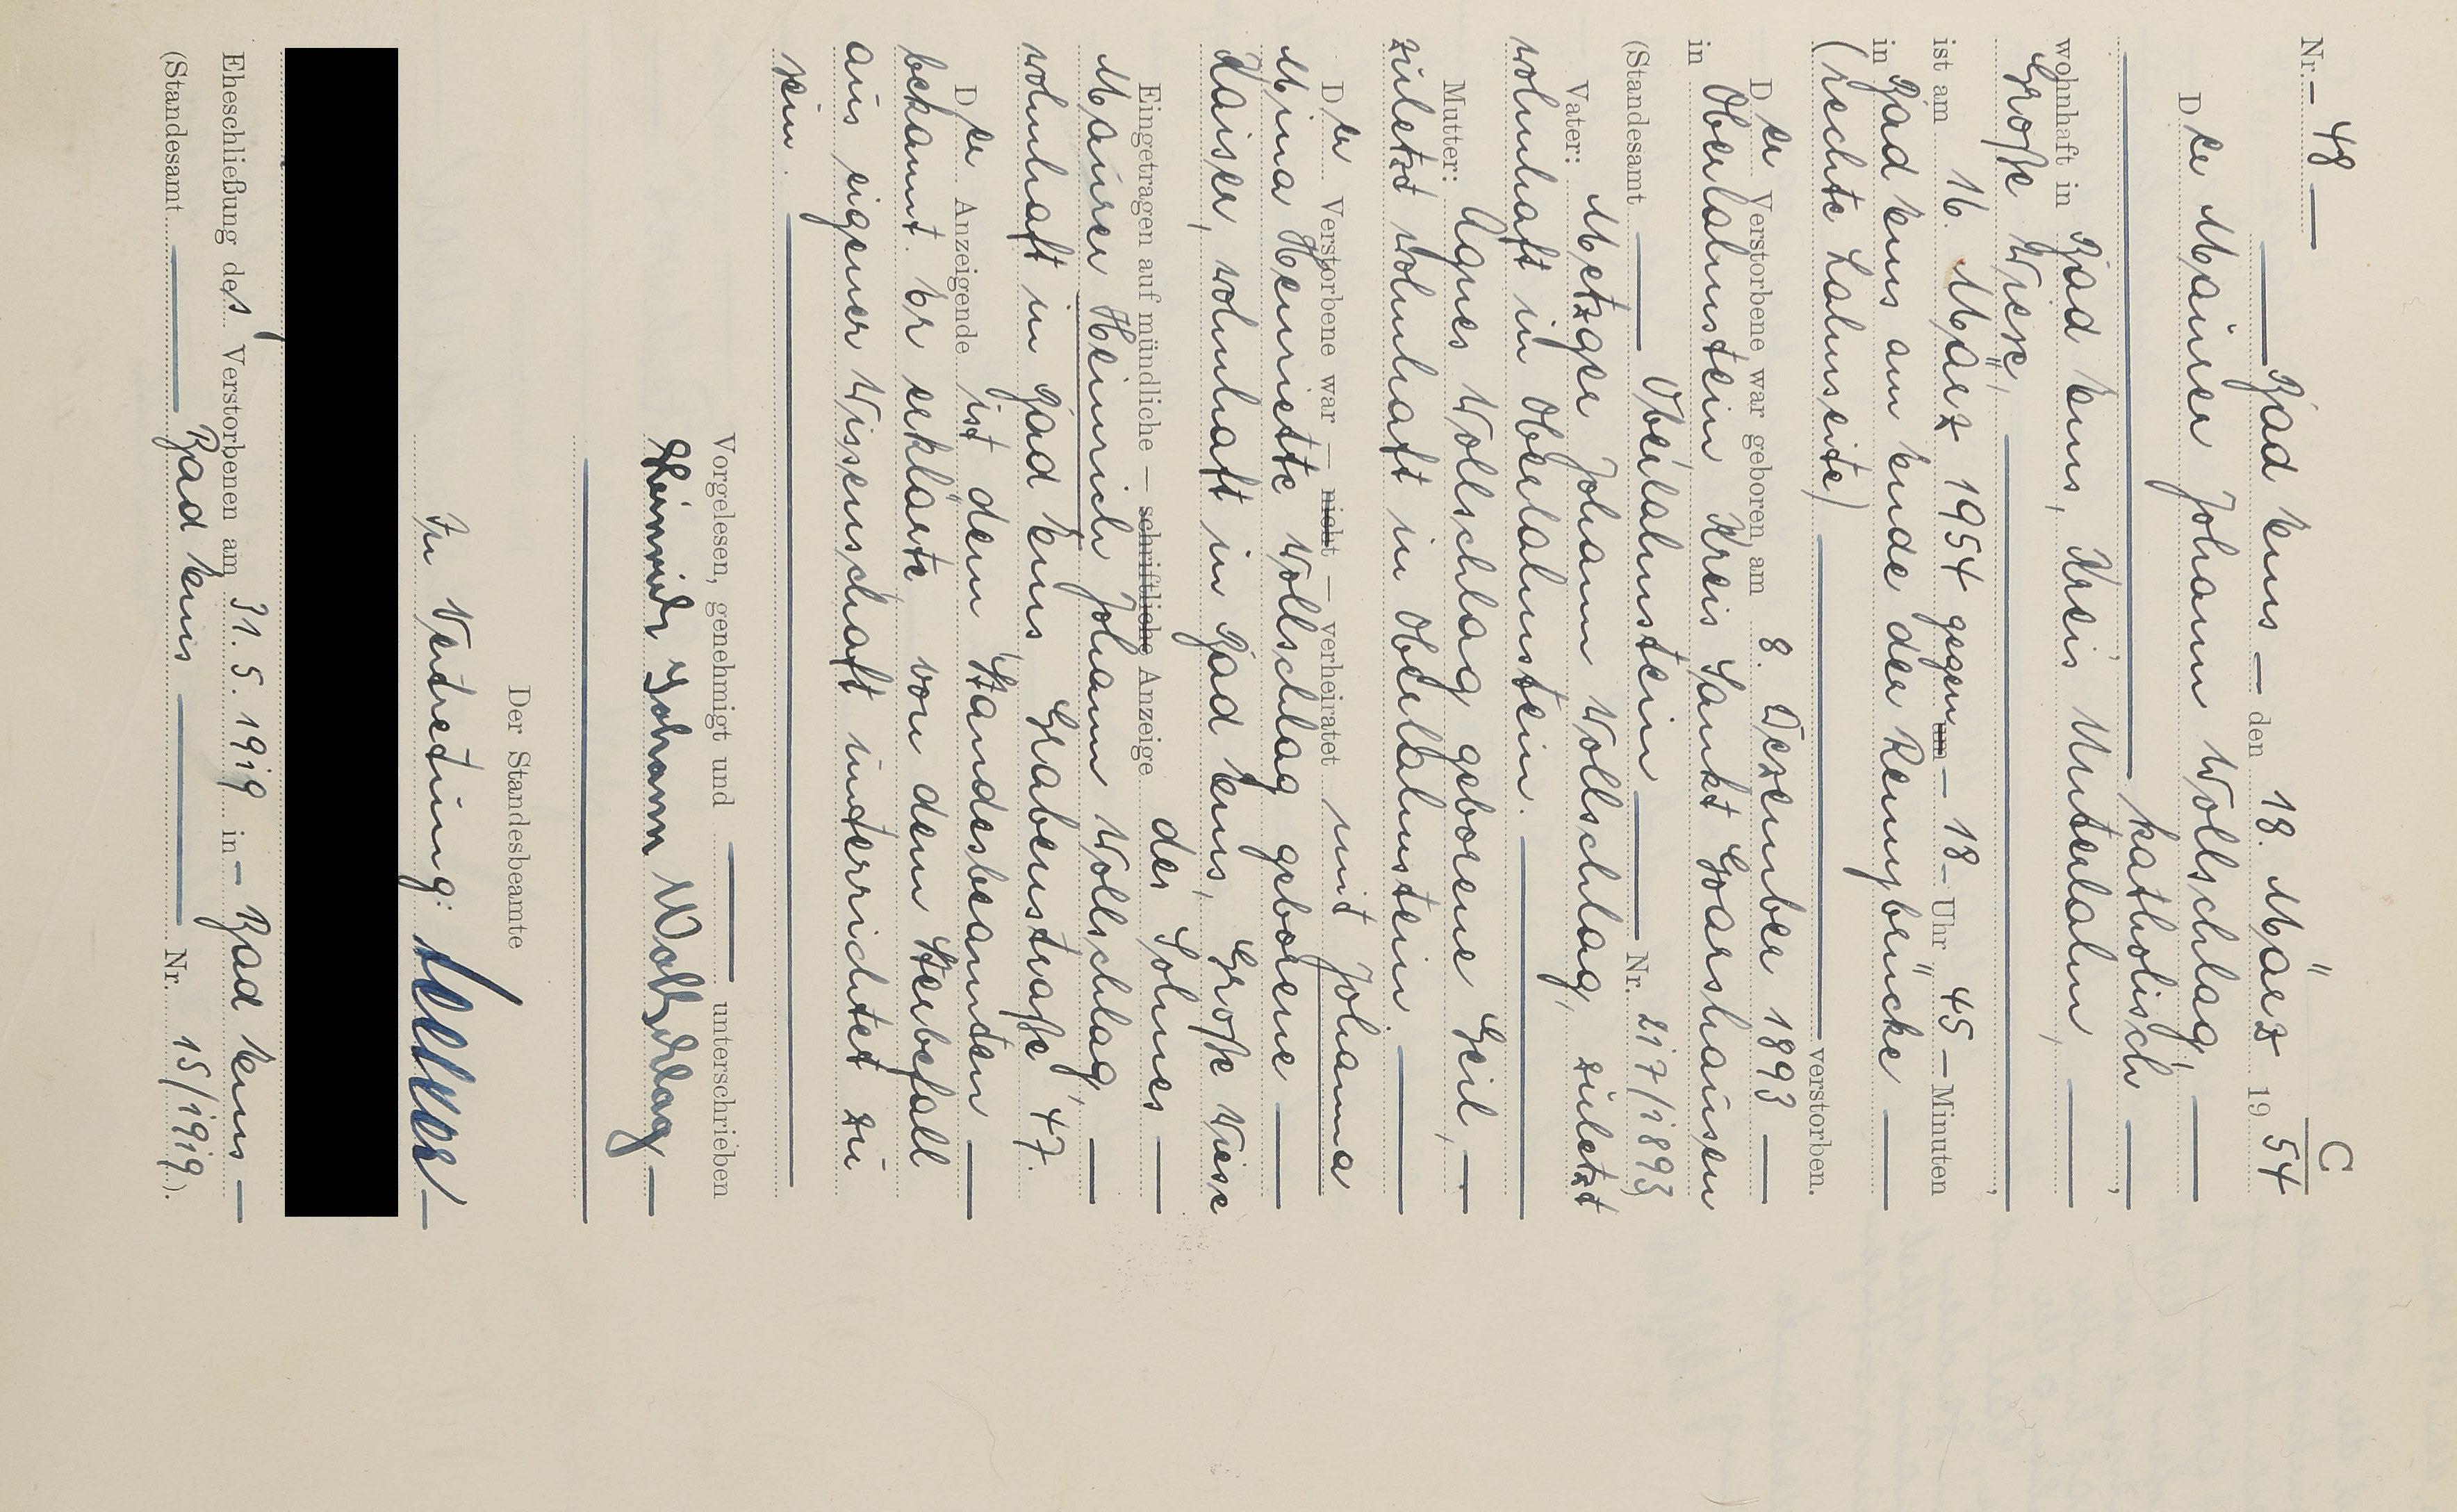 C
Nr. – 48 —
— Bad Ems — den 18. März 1954
Der Maurer Johann Wollschlag, —
— katholisch —,
wohnhaft in Bad Ems, Kreis Unterlahn, —
Große Wiese, —,
ist am 16. März 1954 gegen um — 18 — Uhr 45 — Minuten
in Bad Ems am Ende der Remybrücke —
(rechte Lahnseite) — verstorben.
Der Verstorbene war geboren am 8. Dezember 1893 —
in Oberlahnstein Kreis Sankt Goarshausen
(Standesamt — Oberlahnstein — Nr. 217/1893)
Vater: Metzger Johann Wollschlag, zuletzt
wohnhaft in Oberlahnstein. —
Mutter: Agnes Wollschlag geborene Geil, —
zuletzt wohnhaft in Oberlahnstein. —
Der Verstorbene war — nicht — verheiratet mit Johanna
Mina Henriette Wollschlag geborene —
Kaiser, wohnhaft in Bad Ems, Große Wiese
Eingetragen auf mündliche — schriftliche Anzeige des Sohnes —
Maurer Heinrich Johann Wollschlag, —
wohnhaft in Bad Ems, Grabenstraße 47.
Der Anzeigende ist dem Standesbeamten —
bekannt. Er erklärte, von dem Sterbefall
aus eigener Wissenschaft unterrichtet zu
sein. —
Vorgelesen, genehmigt und — unterschrieben
Heinrich Johann Wollschlag —
Der Standesbeamte
In Vertretung:
Eheschließung des Verstorbenen am 31. 5. 1919 in — Bad Ems —
(Standesamt — Bad Ems — Nr. 15/1919).